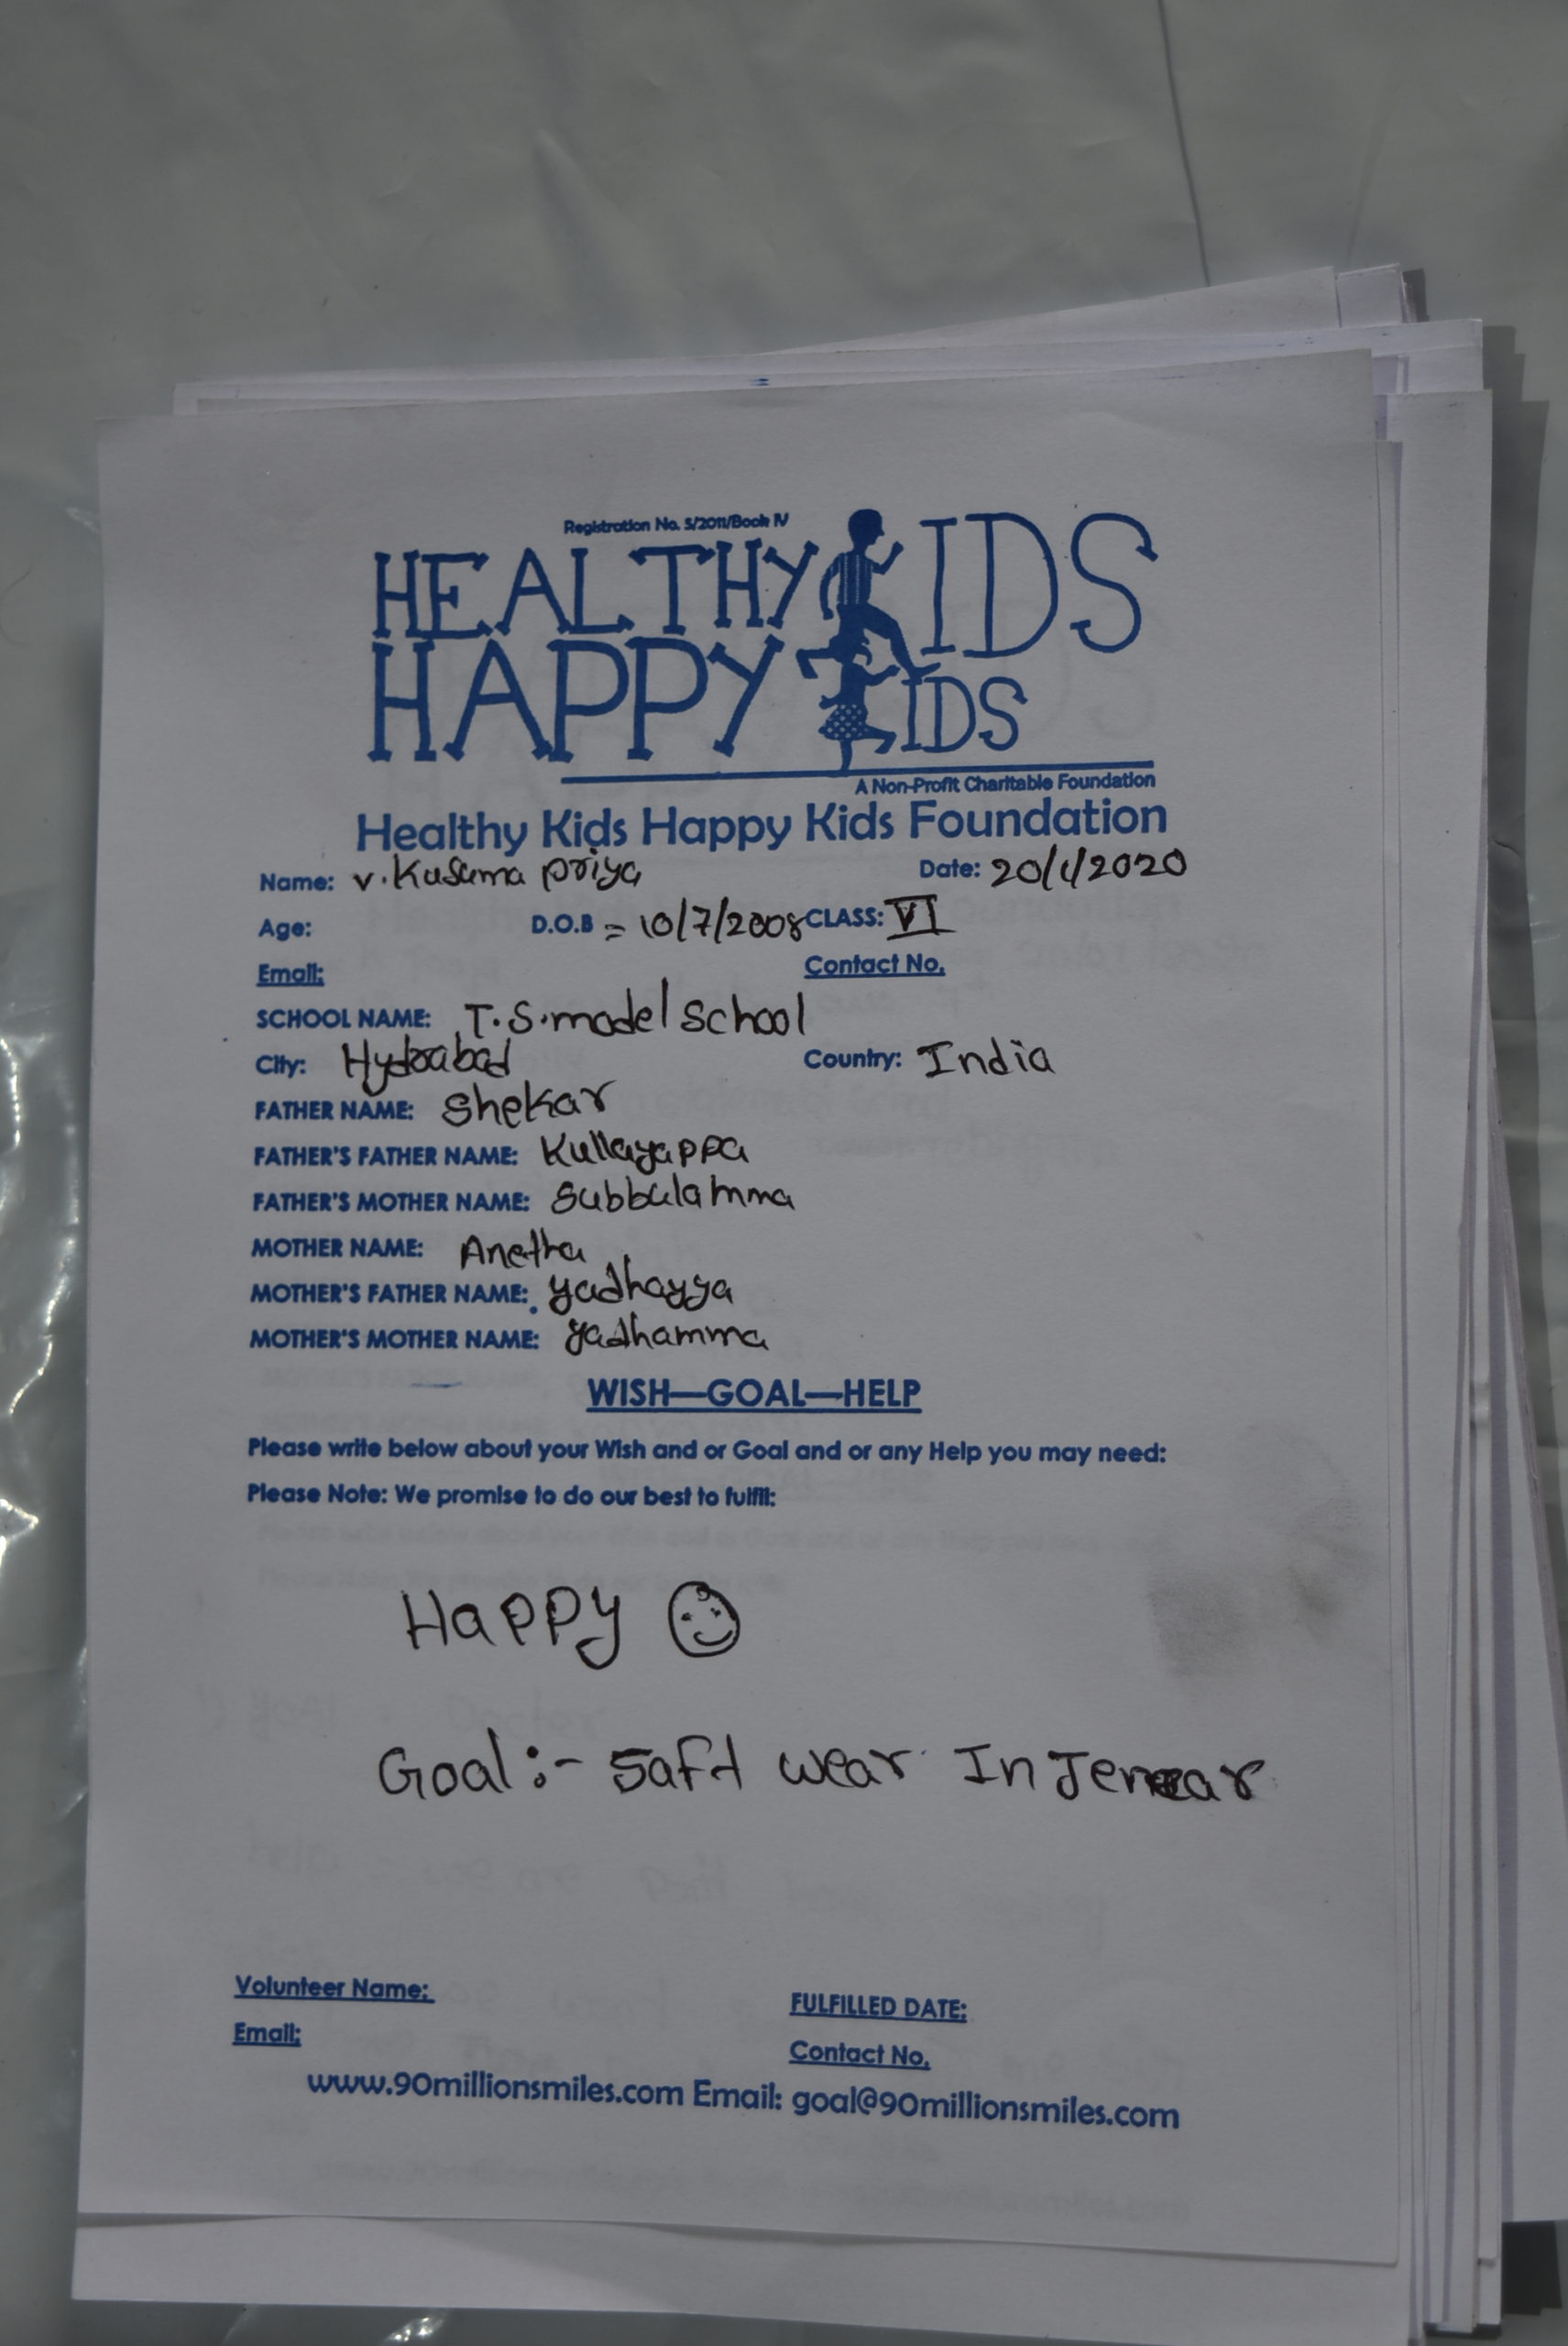 Registration No. 5/2011/Book IV
HEALTHY KIDS
HAPPY KIDS
A Non-Profit Charitable Foundation
Healthy Kids Happy Kids Foundation
Name: v. Kusuma priya Date: 20/1/2020
Age: D.O.B = 10/7/2008 CLASS: VI
Email: Contact No.
SCHOOL NAME: T.S. model School
City: Hydrabad Country: India
FATHER NAME: Shekar
FATHER'S FATHER NAME: Kullayappa
FATHER'S MOTHER NAME: Subbulamma
MOTHER NAME: Anetha
MOTHER'S FATHER NAME: yadhayya
MOTHER'S MOTHER NAME: yadhamma
WISH—GOAL—HELP
Please write below about your Wish and or Goal and or any Help you may need:
Please Note: We promise to do our best to fulfil:
Happy ☺
Goal :- Saft wear
Volunteer Name: FULFILLED DATE:
Email: Contact No.
www.90millionsmiles.com Email: goal@90millionsmiles.com